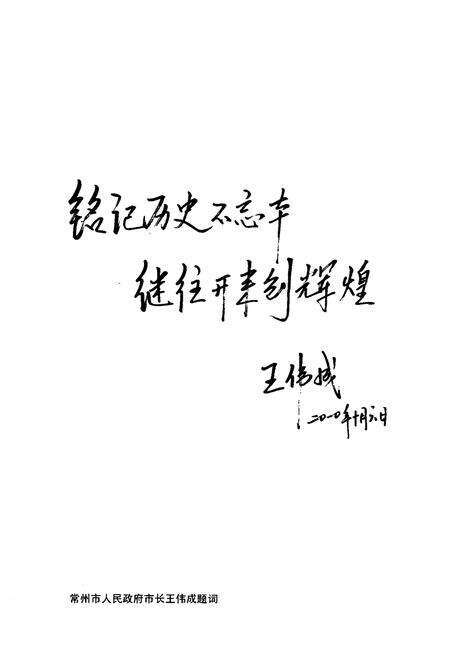 铭记历史不忘本
继往开来创辉煌
王伟成
二〇一〇年十月六日
常州市人民政府市长王伟成题词